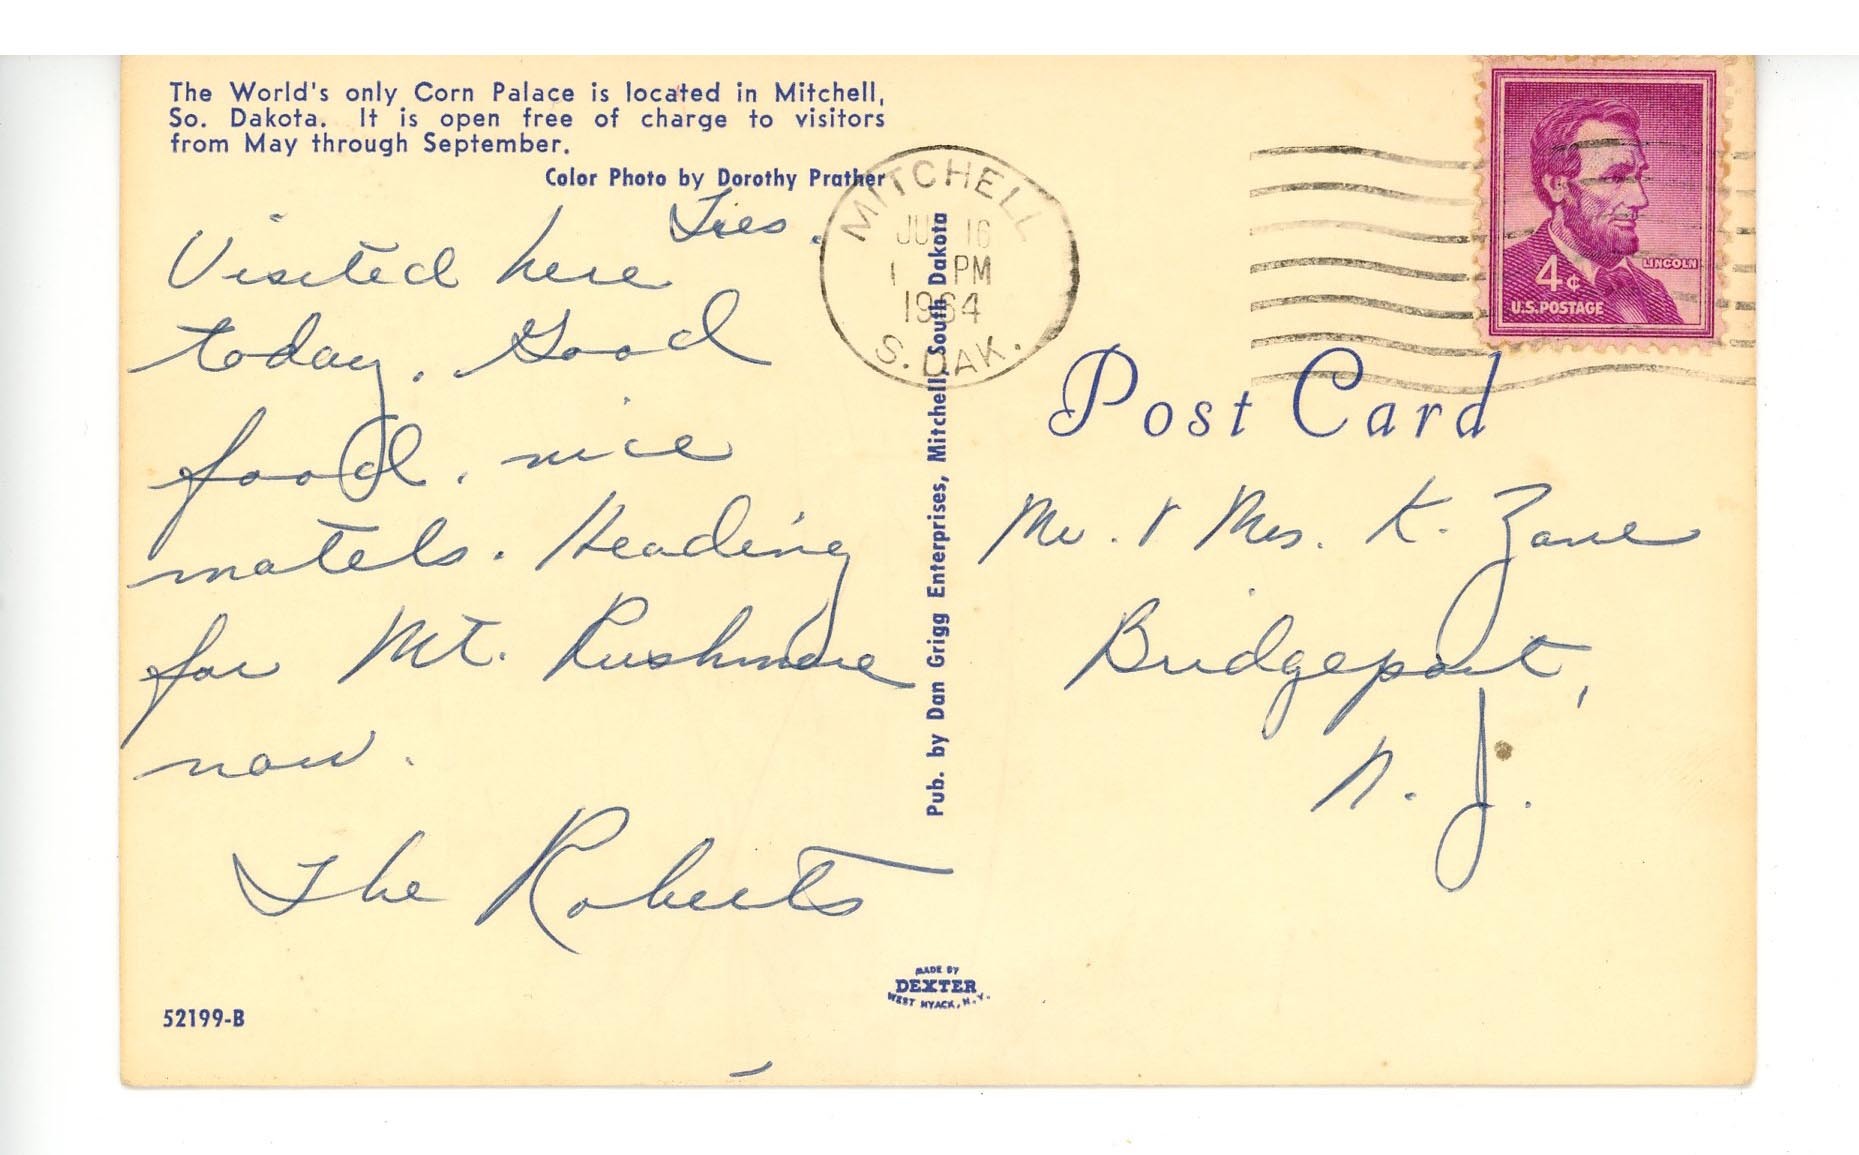 The World's only Corn Palace is located in Mitchell,
So. Dakota. It is open free of charge to visitors
from May through September.
Color Photo by Dorothy Prather
Tues.
Visited here
today. Good
food, nice
motels. Heading
for Mt. Rushmore
now.
The Roberts
52199-B
Pub. by Dan Grigg Enterprises, Mitchell, South Dakota
MADE BY
DEXTER
WEST NYACK, N.Y.
MITCHELL
16
PM
1964
S. DAK.
LINCOLN
4¢
U.S. POSTAGE
Post Card
Mr. & Mrs. K. Zane
Bridgeport,
N. J.